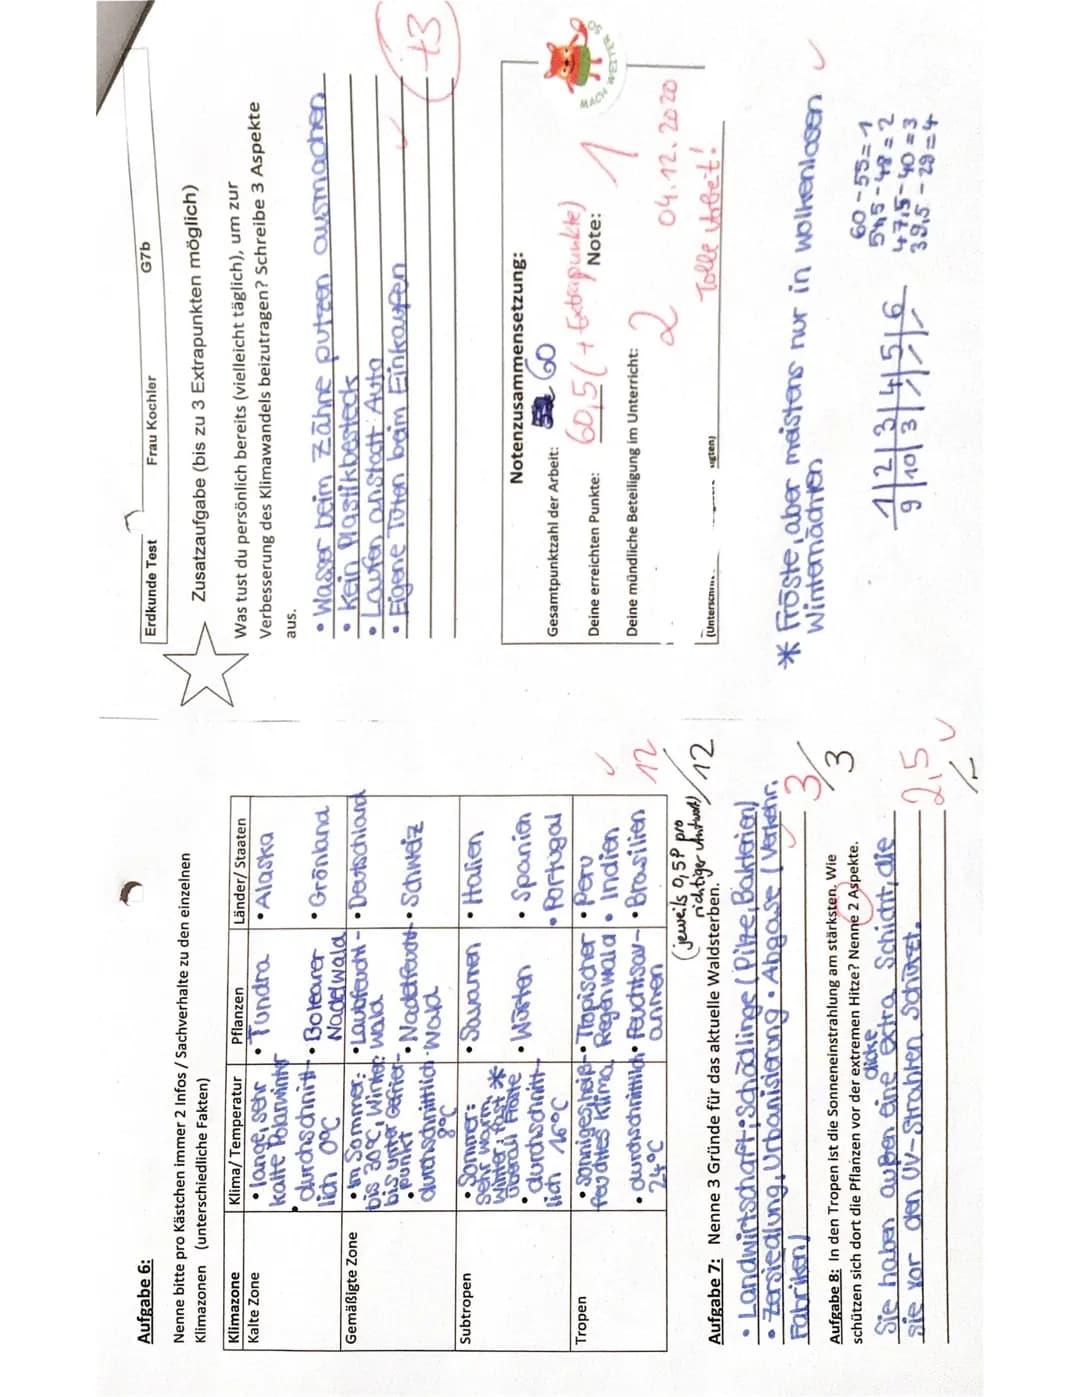 Aufgabe 6:
Nenne bitte pro Kästchen immer 2 Infos / Sachverhalte zu den einzelnen
Klimazonen (unterschiedliche Fakten)
Klimazone Klima/ Temperatur Pflanzen Länder/ Staaten
Kalte Zone
• lange, sehr
kalte Polarwinter
• durchschnitt-
lich 0°C
• Tundra
• Borearer
Nadelwald
• Alaska
• Grönland
Gemäßigte Zone
• Im Sommer:
bis 30°C, Winter:
bis unter Gefrier-
punkt
• durchschnittlich
8°C
• Laubfeucht-
wald
• Nadelfeucht-
wald
• Deutschland
• Schweiz
Subtropen
• Sommer:
sehr warm,
Winter: fast *
überall Fröste
• durchschnitt-
lich 16°C
• Savannen
• Wüsten
• Italien
• Spanien
• Portugal
Tropen
• sonniges, heiß-
feuchtes Klima
• durchschnittlich
24°C
• Tropischer
Regenwald
• Feuchtsav-
annen
• Peru
• Indien
• Brasilien
12
/12
(jeweils 0,5P pro
richtiger Antwort)
Aufgabe 7: Nenne 3 Gründe für das aktuelle Waldsterben.
• Landwirtschaft; Schädlinge (Pilze, Bakterien)
• Zersiedlung, Urbanisierung • Abgase (Verkehr,
Fabriken)
3/3
Aufgabe 8: In den Tropen ist die Sonneneinstrahlung am stärksten. Wie
schützen sich dort die Pflanzen vor der extremen Hitze? Nenne 2 Aspekte.
Sie haben außen eine extra dicke Schicht, die
sie vor den UV-Strahlen schützt.
2,5
Erdkunde Test Frau Kochler G7b
Zusatzaufgabe (bis zu 3 Extrapunkten möglich)
Was tust du persönlich bereits (vielleicht täglich), um zur
Verbesserung des Klimawandels beizutragen? Schreibe 3 Aspekte
aus.
• Wasser beim Zähne putzen ausmachen
• Kein Plastikbesteck
• Laufen anstatt Auto
• Eigene Tüten beim Einkaufen
+3
Notenzusammensetzung:
Gesamtpunktzahl der Arbeit: 60
Deine erreichten Punkte: 60,5 (+ Extrapunkte) Note: 1
Deine mündliche Beteiligung im Unterricht: 2
MACH WEITER SO
04.12.2020
Tolle Arbeit!
* Fröste, aber meistens nur in wolkenlosen
Winternächten
1|2|3|4|5|6
9|10|3|/|/|/
60 - 55 = 1
54,5 - 48 = 2
47,5 - 40 = 3
39,5 - 29 = 4